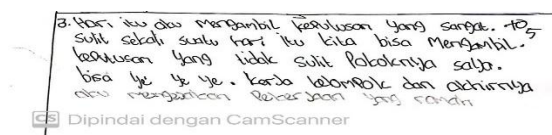 3. Hari itu aku Mengambil kePuLusan yang sangat. +05
sulit sekali suatu hari itu kita bisa Mengambil.
kePuLusan yang tidak sulit Pokoknya saya.
bisa ye ye ye. kerja keLomPok dan akhirnya
aku mengerjakan Pekerjaan yang
CS Dipindai dengan CamScanner